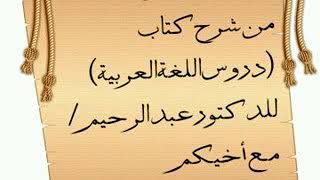 من شرح كتاب
(دروس اللغة العربية)
للدكتور عبد الرحيم /
مع أخيكم